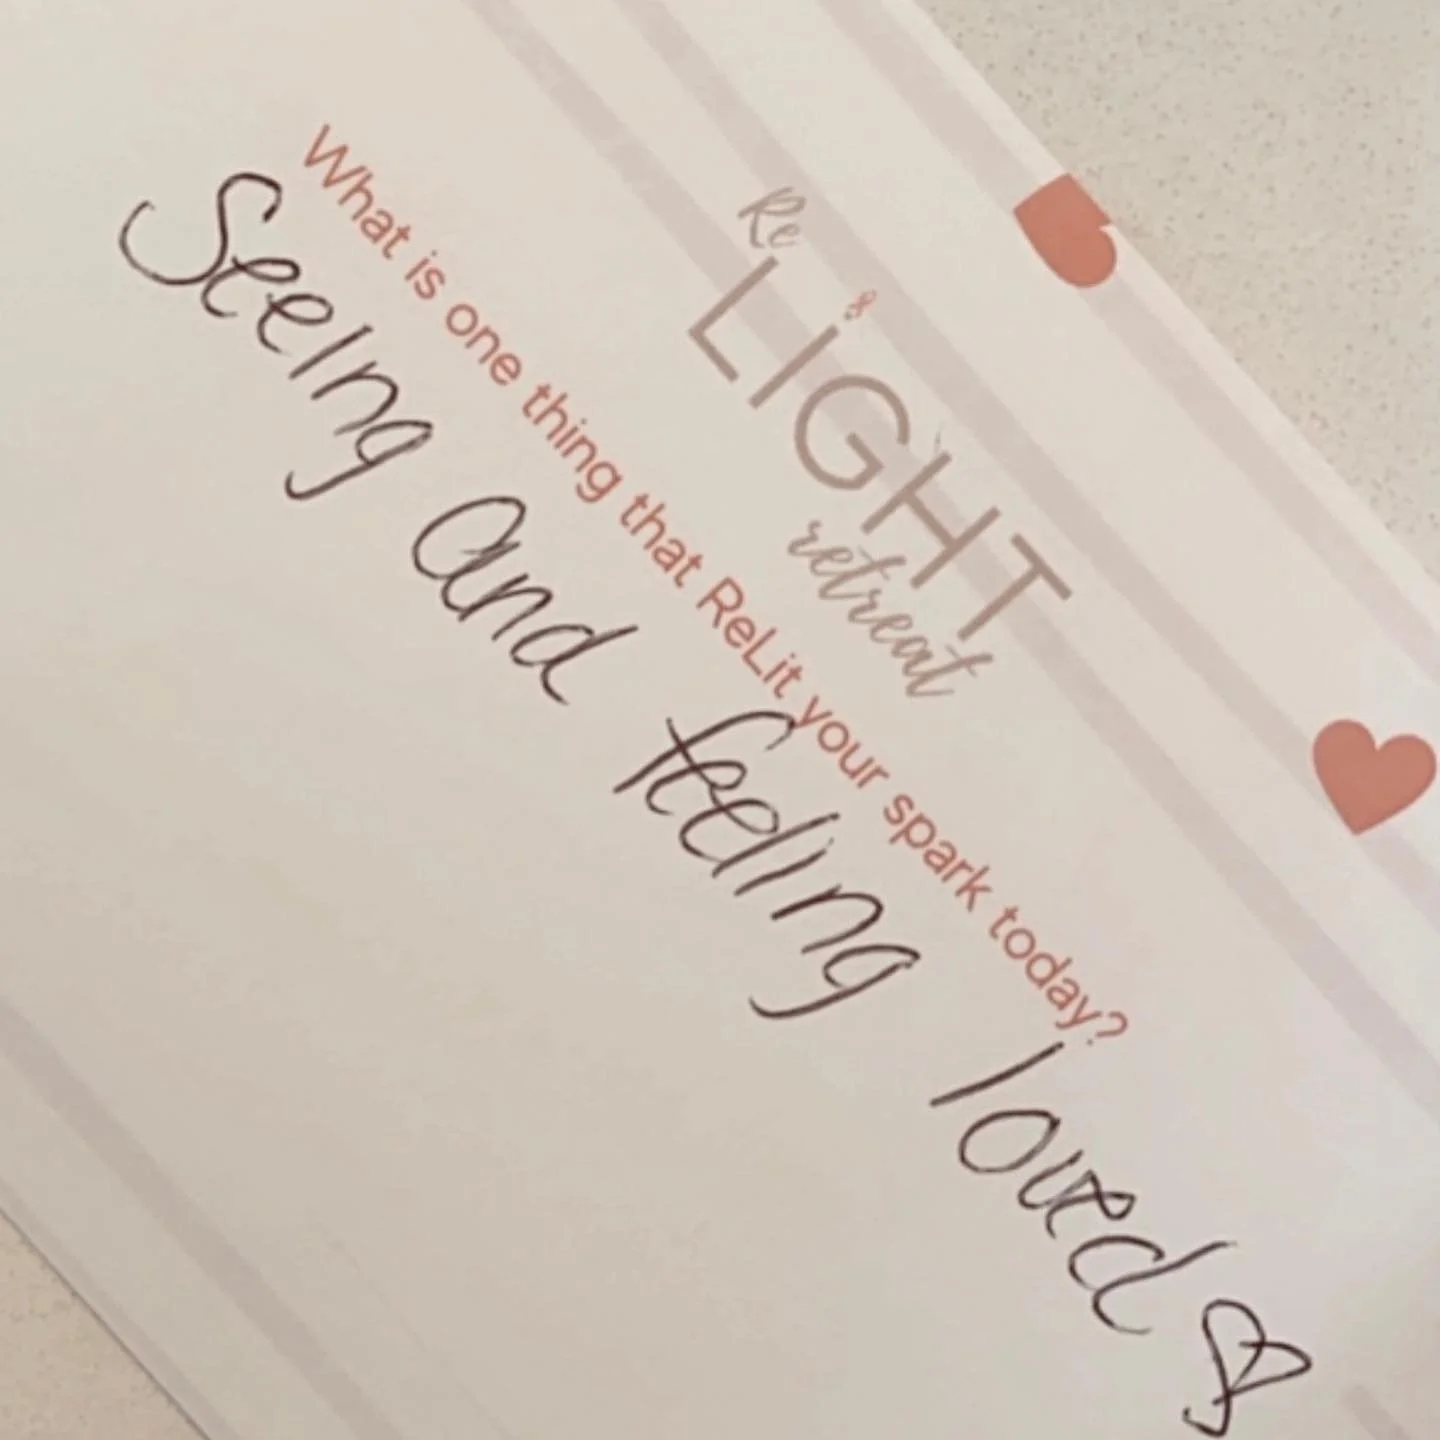 Re
LIGHT
retreat
What is one thing that ReLit your spark today?
Seeing and feeling loved